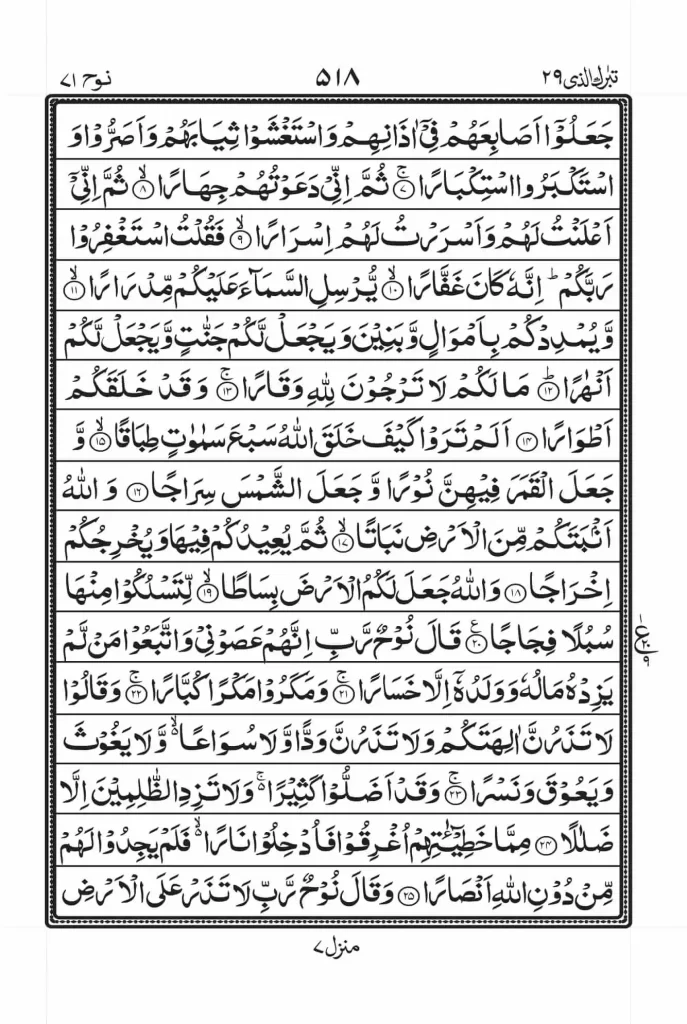 تبٰرك الذی ٢٩ ۵۱۸ نوح ٧١
جَعَلُوْۤا اَصَابِعَهُمْ فِیْۤ اٰذَانِهِمْ وَاسْتَغْشَوْا ثِیَابَهُمْ وَاَصَرُّوْا وَ
اسْتَكْبَرُوا اسْتِكْبَارًا ۚ‏﴿۷﴾ ثُمَّ اِنِّیْ دَعَوْتُهُمْ جِهَارًا ۙ‏﴿۸﴾ ثُمَّ اِنِّیْۤ
اَعْلَنْتُ لَهُمْ وَاَسْرَرْتُ لَهُمْ اِسْرَارًا ۙ‏﴿۹﴾ فَقُلْتُ اسْتَغْفِرُوْا
رَبَّكُمْ ؕ اِنَّهٗ كَانَ غَفَّارًا ۙ‏﴿۱۰﴾ یُّرْسِلِ السَّمَآءَ عَلَیْكُمْ مِّدْرَارًا ۙ‏﴿۱۱﴾
وَّیُمْدِدْكُمْ بِاَمْوَالٍ وَّبَنِیْنَ وَیَجْعَلْ لَّكُمْ جَنّٰتٍ وَّیَجْعَلْ لَّكُمْ
اَنْهٰرًا ؕ‏﴿۱۲﴾ مَا لَكُمْ لَا تَرْجُوْنَ لِلّٰهِ وَقَارًا ۚ‏﴿۱۳﴾ وَقَدْ خَلَقَكُمْ
اَطْوَارًا ﴿۱۴﴾ اَلَمْ تَرَوْا كَیْفَ خَلَقَ اللّٰهُ سَبْعَ سَمٰوٰتٍ طِبَاقًا ۙ‏﴿۱۵﴾ وَّ
جَعَلَ الْقَمَرَ فِیْهِنَّ نُوْرًا وَّجَعَلَ الشَّمْسَ سِرَاجًا ﴿۱۶﴾ وَاللّٰهُ
اَنْۢبَتَكُمْ مِّنَ الْاَرْضِ نَبَاتًا ۙ‏﴿۱۷﴾ ثُمَّ یُعِیْدُكُمْ فِیْهَا وَیُخْرِجُكُمْ
اِخْرَاجًا ﴿۱۸﴾ وَاللّٰهُ جَعَلَ لَكُمُ الْاَرْضَ بِسَاطًا ۙ‏﴿۱۹﴾ لِّتَسْلُكُوْا مِنْهَا
سُبُلًا فِجَاجًا ﴿۲۰﴾ قَالَ نُوْحٌ رَّبِّ اِنَّهُمْ عَصَوْنِیْ وَاتَّبَعُوْا مَنْ لَّمْ
یَزِدْهُ مَالُهٗ وَوَلَدُهٗۤ اِلَّا خَسَارًا ۚ‏﴿۲۱﴾ وَمَكَرُوْا مَكْرًا كُبَّارًا ۚ‏﴿۲۲﴾ وَقَالُوْا
لَا تَذَرُنَّ اٰلِهَتَكُمْ وَلَا تَذَرُنَّ وَدًّا وَّلَا سُوَاعًا ۙ وَّلَا یَغُوْثَ
وَیَعُوْقَ وَنَسْرًا ۚ‏﴿۲۳﴾ وَقَدْ اَضَلُّوْا كَثِیْرًا ۚ وَلَا تَزِدِ الظّٰلِمِیْنَ اِلَّا
ضَلٰلًا ﴿۲۴﴾ مِمَّا خَطِیْٓـٰٔتِهِمْ اُغْرِقُوْا فَاُدْخِلُوْا نَارًا ۙ فَلَمْ یَجِدُوْا لَهُمْ
مِّنْ دُوْنِ اللّٰهِ اَنْصَارًا ﴿۲۵﴾ وَقَالَ نُوْحٌ رَّبِّ لَا تَذَرْ عَلَی الْاَرْضِ
منزل ٧